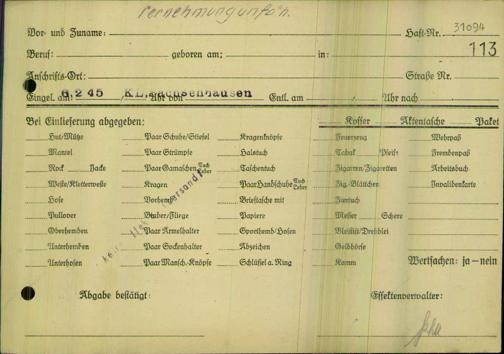 Vernehmungunfäh.
Vor- und Zuname: Haft-Nr. 31094
113
Beruf: geboren am: in:
Anschrifts-Ort: Straße Nr.
Eingel. am: 6.2 45 Uhr von K.L. Sachsenhausen Entl. am Uhr nach
Bei Einlieferung abgegeben: Koffer Aktentasche Paket
Hut/Mütze Paar Schuhe/Stiefel Kragenknöpfe Feuerzeug Wehrpaß
Mantel Paar Strümpfe Halstuch Tabak Pfeife Fremdenpaß
Rock Jacke Paar Gamaschen Tuch Leder Taschentuch Zigarren/Zigaretten Arbeitsbuch
Weste/Kletterweste Kragen Paar Handschuhe Tuch Leder Zig.-Blättchen Invalidenkarte
Hose Vorhemd Brieftasche mit Feuertuch
Pullover Binder/Fliege Papiere Messer Schere
Oberhemden Paar Ärmelhalter Sporthemd/Hosen Bleistift/Drehblei
Unterhemden Paar Sockenhalter Abzeichen Geldbörse
Unterhosen Paar Mansch.-Knöpfe Schlüssel a. Ring Kamm Wertsachen: ja – nein
Abgabe bestätigt: Effektenverwalter: